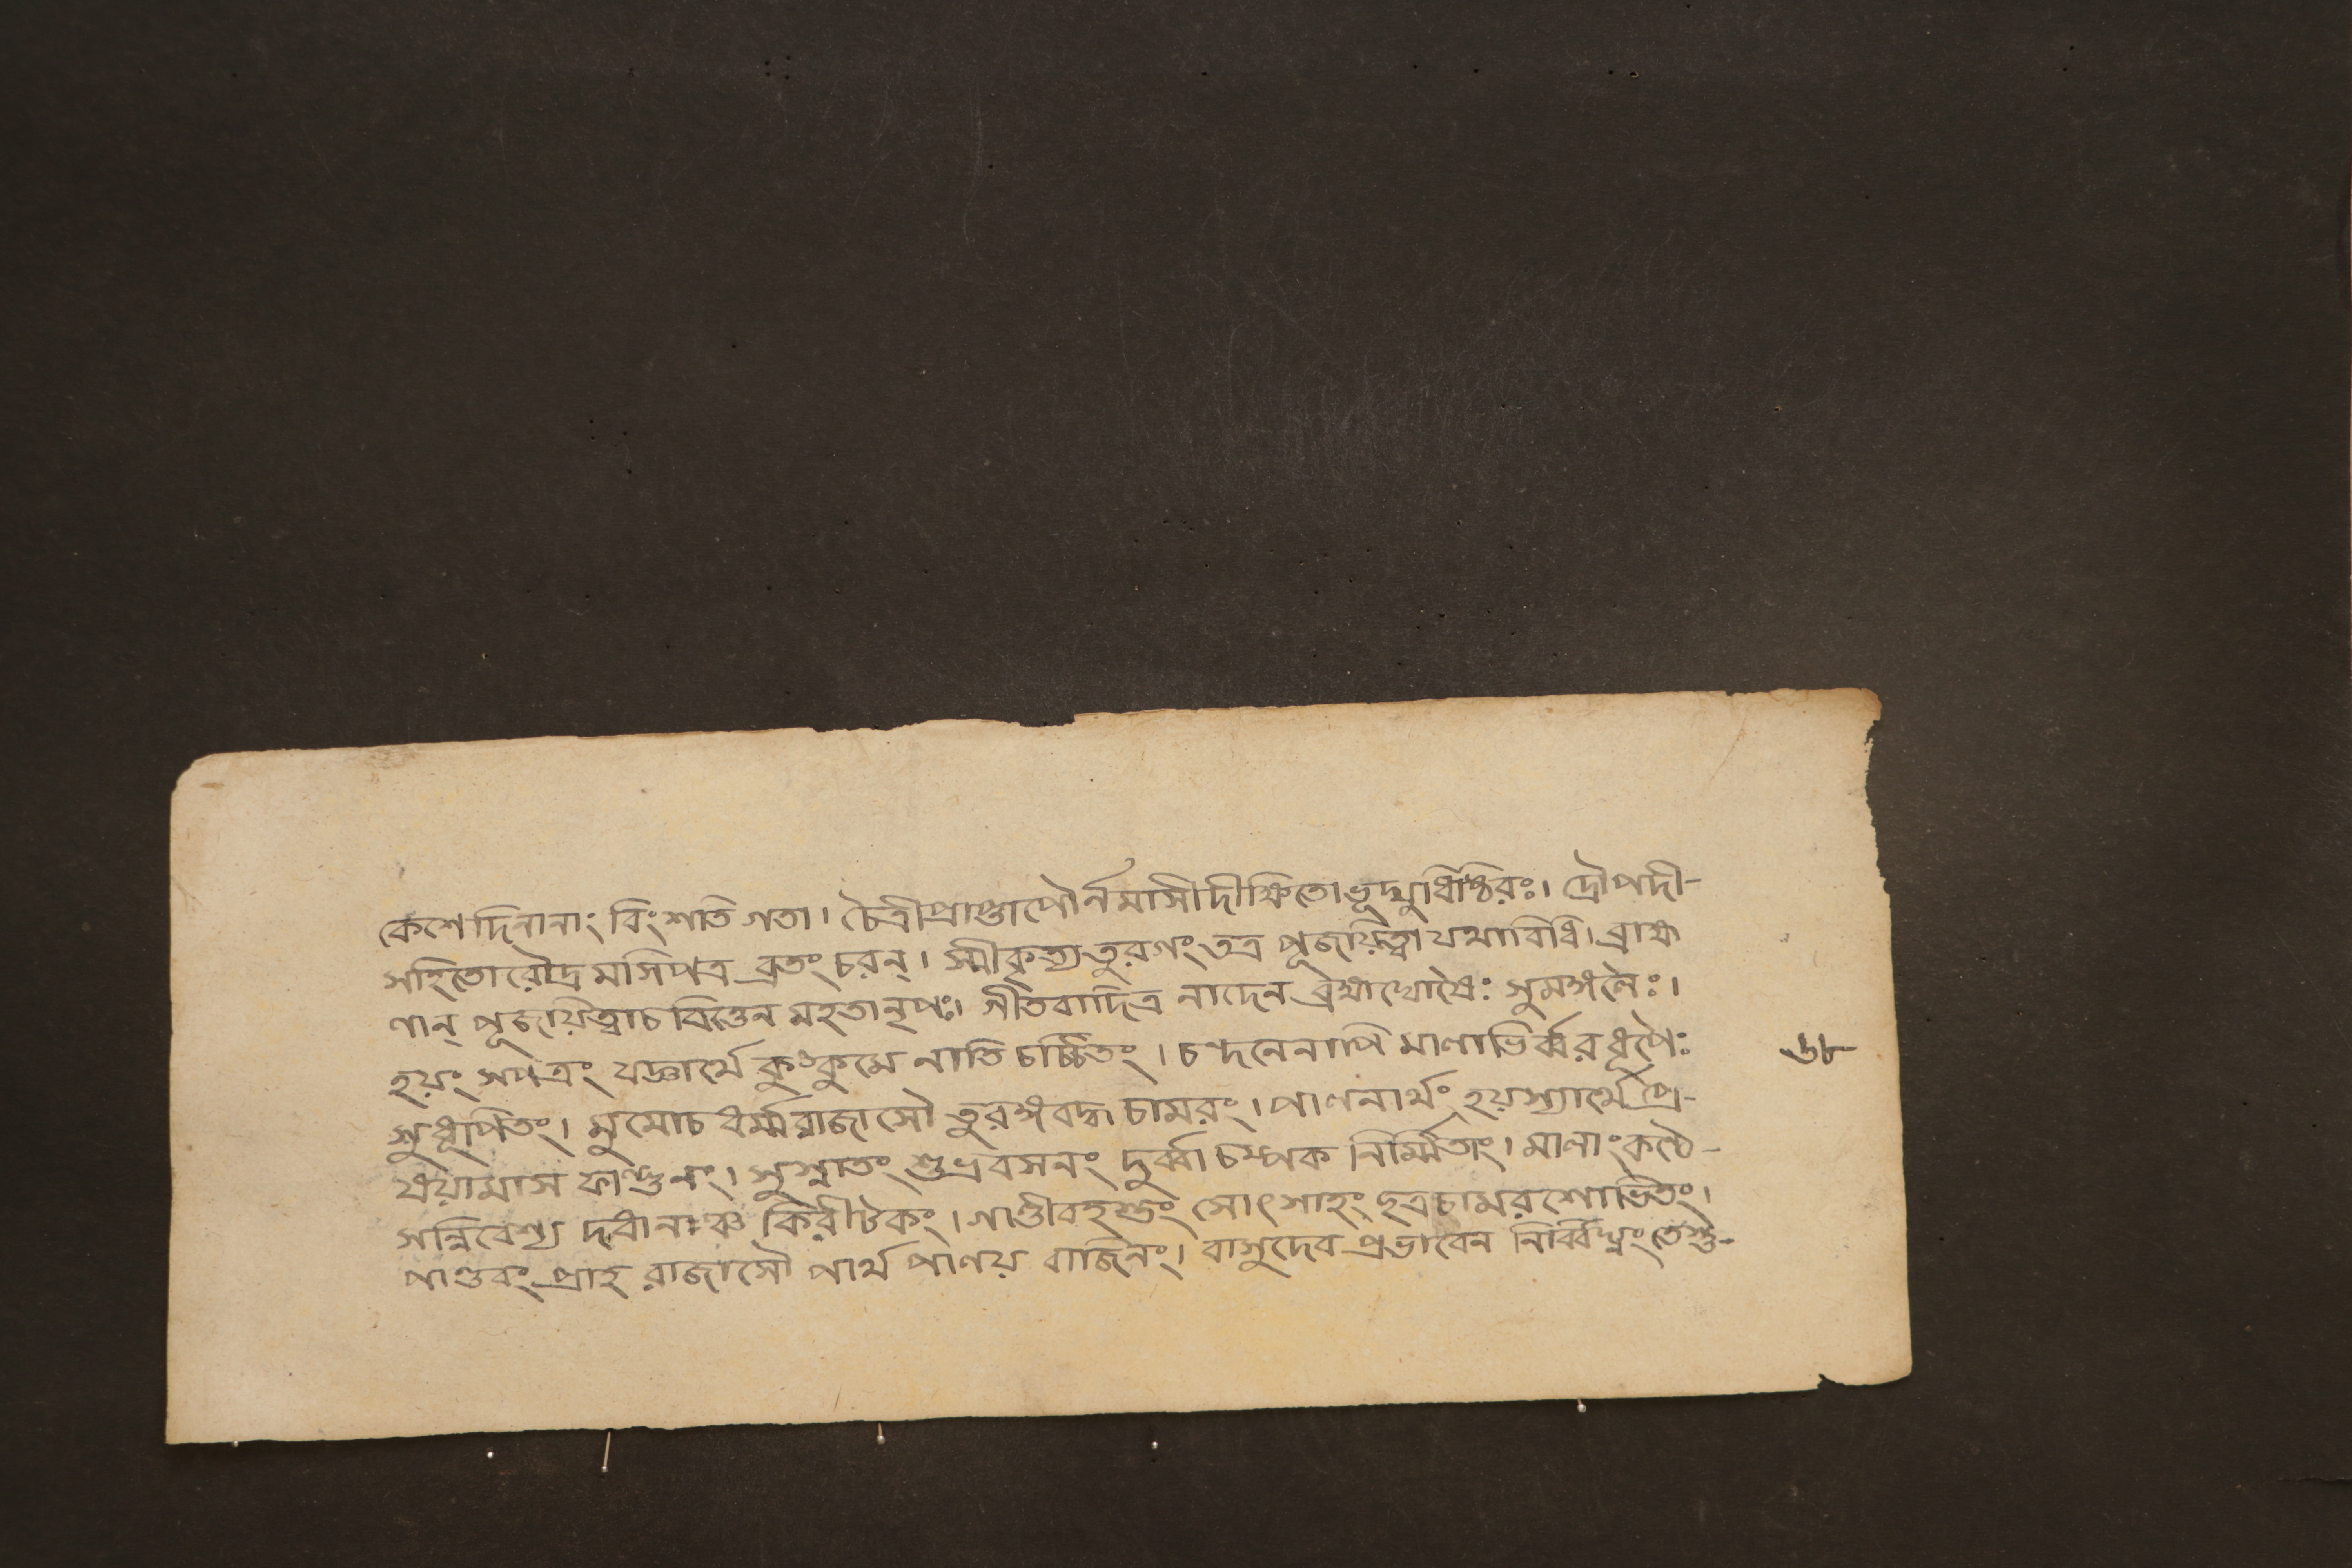 কেশে দিনানাং বিংশতি গতা। চৈত্রী প্রাপ্তা পৌর্নমাসী দীক্ষিতো ভূদ্যুধিষ্ঠিরঃ। দ্রৌপদী-
সহিতো রৌদ্র মসিপত্র ব্রতং চরন্। স্মীকৃত্য তুরগং তত্র পূজয়িত্বা যথাবিধি। ব্রাহ্ম
ণান্ পূজয়িত্বাচ বিত্তেন মহতা নৃপঃ। গীতবাদিত্র নাদেন ব্রহ্মঘোষৈঃ সুমঙ্গলৈঃ।
হয়ং সপত্রং যজ্ঞার্থে কুংকুমে নাতি চর্চ্চিতং। চন্দনেনাপি মালাভির্ব্বর ধূপৈঃ
সুধূপিতং। মুমোচ ধর্ম্মরাজাসৌ তুরঙ্গবদ্ধ চামরং। পালনার্থং হয়স্যার্থে প্রে-
ষয়ামাস ফাল্গুনং। সুস্নাতং শুভ্রবসনং দুর্ব্বা চম্পক নির্ম্মিতাং। মালাং কণ্ঠে-
সন্নিবেশ্য দধানাঞ্চ কিরীটকং। গাণ্ডীবহস্তং সোৎসাহং ছত্রচামরশোভিতং।
পাণ্ডবং প্রাহ রাজাসৌ পার্থ পালয় বাজিনং। বাসুদেব প্রভাবেন নির্ব্বিঘ্নং তেস্তু-
৬৮